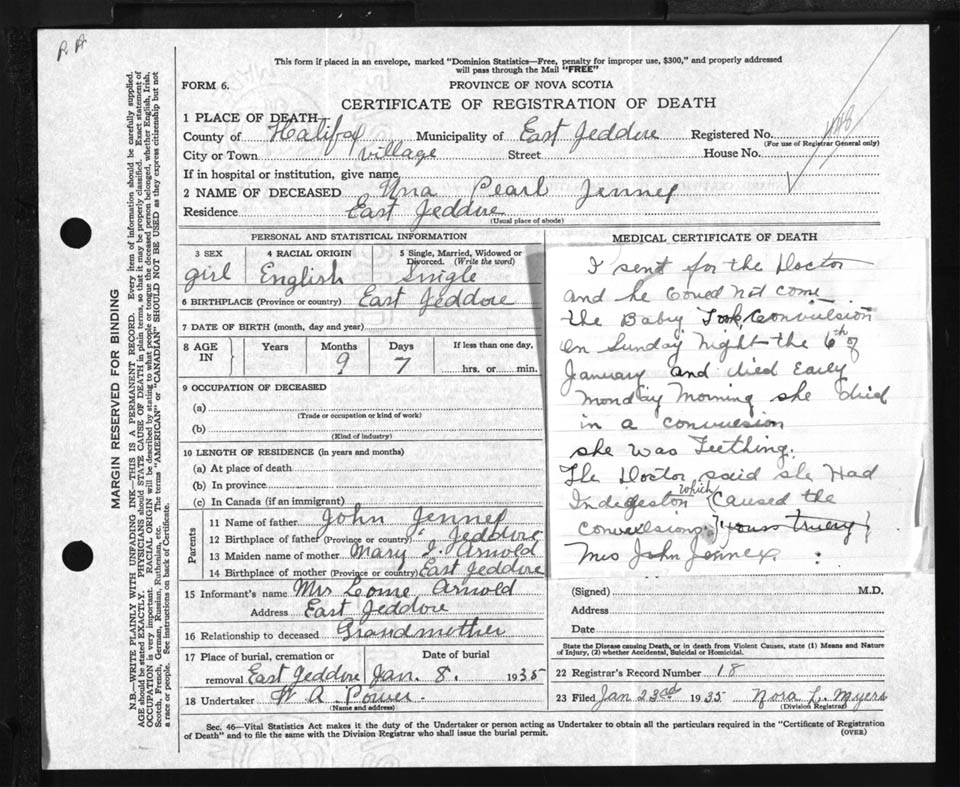 This form if placed in an envelope, marked "Dominion Statistics—Free, penalty for improper use, $300," and properly addressed
will pass through the Mail "FREE"
FORM 6.
PROVINCE OF NOVA SCOTIA
CERTIFICATE OF REGISTRATION OF DEATH
1 PLACE OF DEATH—
County of Halifax Municipality of East Jeddore Registered No.
(For use of Registrar General only)
City or Town village Street House No.
If in hospital or institution, give name
2 NAME OF DECEASED Una Pearl Jennex
Residence East Jeddore
(Usual place of abode)
PERSONAL AND STATISTICAL INFORMATION
3 SEX
girl
4 RACIAL ORIGIN
English
5 Single, Married, Widowed or
Divorced. (Write the word)
Single
6 BIRTHPLACE (Province or country) East Jeddore
7 DATE OF BIRTH (month, day and year)
8 AGE
IN
Years Months Days If less than one day,
9 7 hrs. or min.
9 OCCUPATION OF DECEASED
(a)
(Trade or occupation or kind of work)
(b)
(Kind of industry)
10 LENGTH OF RESIDENCE (in years and months)
(a) At place of death
(b) In province
(c) In Canada (if an immigrant)
Parents
11 Name of father John Jennex
12 Birthplace of father (Province or country) Jeddore
13 Maiden name of mother Mary J. Arnold
14 Birthplace of mother (Province or country) East Jeddore
15 Informant's name Mrs Arnold
Address East Jeddore
16 Relationship to deceased Grandmother
17 Place of burial, cremation or Date of burial
removal East Jeddore Jan. 8. 1935
18 Undertaker W A Power.
(Name and address)
MEDICAL CERTIFICATE OF DEATH
I sent for the Doctor
and he Coued not come
the Baby Took Convulsion
On Sunday Night the 6th of
January and died Early
Monday Morning she died
in a convulsion
she was Teething.
The Doctor said she Had
Indigeston which Caused the
Convulsions yours truery
Mrs John Jennex.
(Signed) M.D.
Address
Date
State the Disease causing Death, or in death from Violent Causes, state (1) Means and Nature
of Injury, (2) whether Accidental, Suicidal or Homicidal.
22 Registrar's Record Number 18
23 Filed Jan 23rd 1935 Nora L. Myers
(Division Registrar)
Sec. 46—Vital Statistics Act makes it the duty of the Undertaker or person acting as Undertaker to obtain all the particulars required in the "Certificate of Registration
of Death" and to file the same with the Division Registrar who shall issue the burial permit.
(OVER)
MARGIN RESERVED FOR BINDING
N.B.—WRITE PLAINLY WITH UNFADING INK—THIS IS A PERMANENT RECORD. Every item of information should be carefully supplied.
AGE should be stated EXACTLY. PHYSICIANS should STATE CAUSE OF DEATH in plain terms, so that it may be properly classified. Exact statement of
OCCUPATION is very important. RACIAL ORIGIN will be described by stating to what people or tongue the deceased person belonged, whether English, Irish,
Scotch, French, German, Russian, Ruthenian, etc. The terms "AMERICAN" or "CANADIAN" SHOULD NOT BE USED as they express citizenship but not
a race or people. See instructions on back of Certificate.